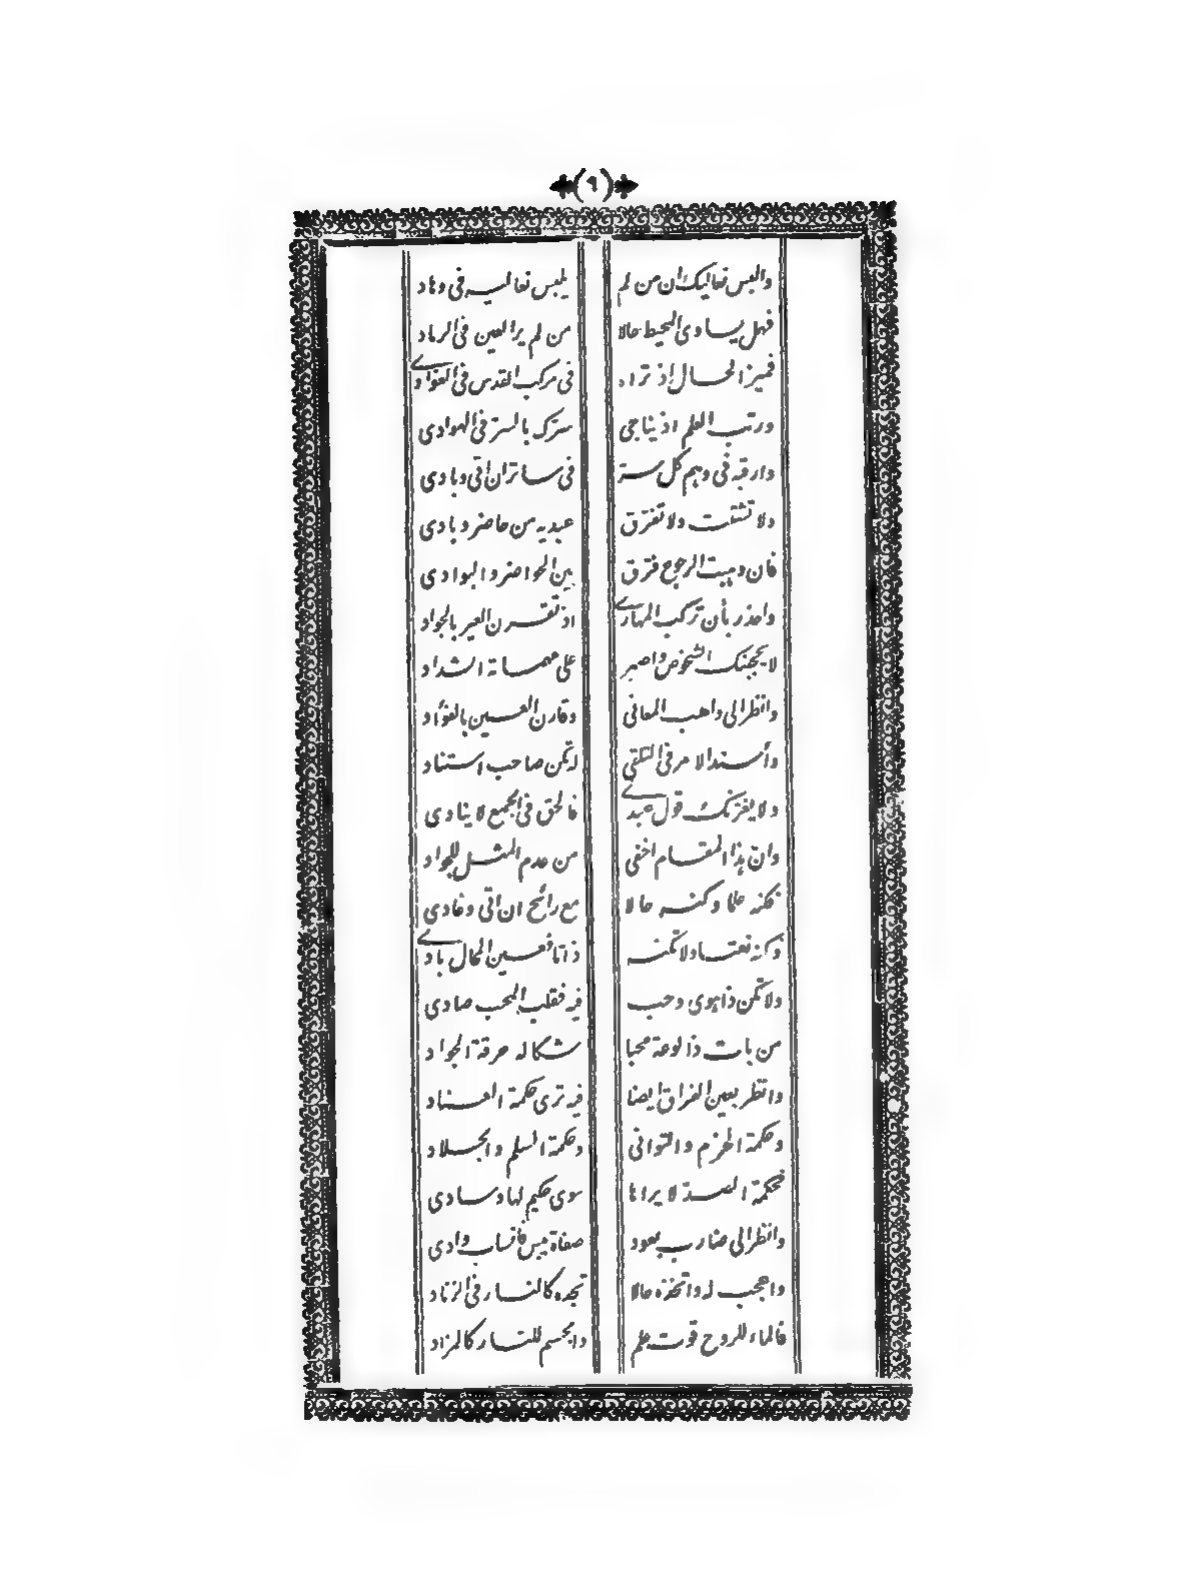 (٩)
والبس نعاليك ان من لم يلبس نعاليه في وهاد
فهل يساوى المحيط حالا من لم ير العين في الرماد
فميز الحال إذ تراه في مركب القدس في الفؤاد
ورتب العلم اذ يناجي سرك بالستر في الهوادى
وارقبه في وهم كل ستر في ساتر ان اتى وبادى
ولا تشتت ولا تفرق عبديه من حاضر وبادى
فان وهيت الرجوع فرق بين الحواضر والبوادى
واحذر بأن تركب المهارى اذ تقرن العير بالجواد
لا يحجبنك الشخوص واصبر على مهماته الشداد
وانظر الى واهب المعاني وقارن العين بالفؤاد
وأسند الامر في التلقي له تكن صاحب استناد
ولا يغرنك قول عبدى فالحق في الجمع لا ينادى
وان هذا المقام اخفى من عدم المثل للجواد
فكنه علما وكنه حالا مع رائح ان اتى وغادى
وكنه نعتا ولا تكنه ذاتا فعين المحال بادى
ولا تكن ذا هوى وحب فيه فقلب المحب صادى
من بات ذا لوعة محبا شكا له حرقة الجواد
وانظر بعين الفراق ايضا فيه ترى حكمة العناد
وحكمة الحزم والتوانى وحكمة السلم والجلاد
فحكمة الصد لا يراها سوى حكيم لها وسادى
وانظر الى ضارب بعود صفاة يبس فانساب وادى
واعجب له واتخذه حالا تجده كالنار في الزناد
فالماء للروح قوت علم والجسم للنار كالمزاد